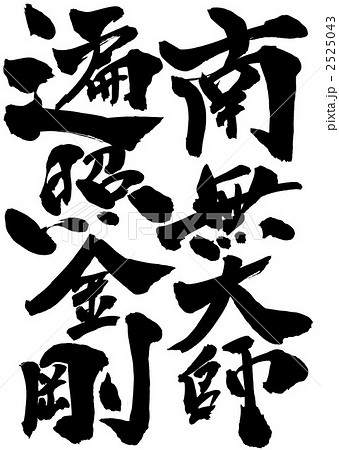 南無大師
遍照金剛
PIXTA
pixta.jp - 2525043